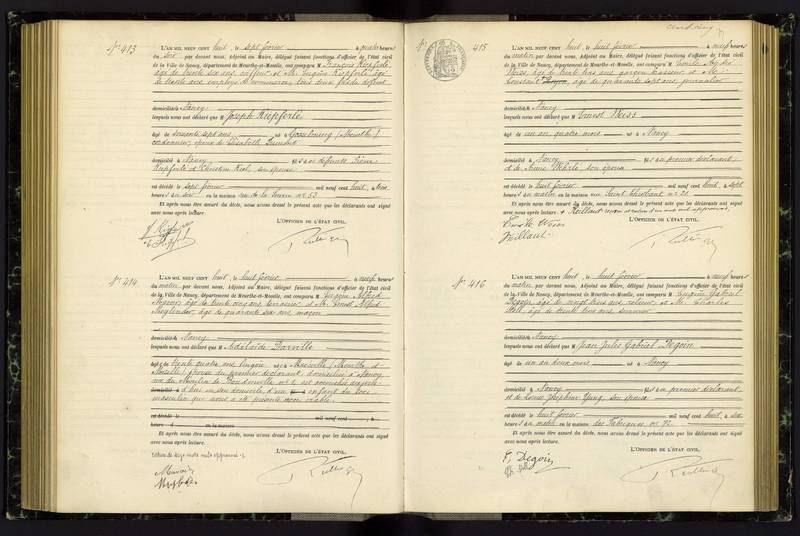 No 413
L'AN MIL NEUF CENT huit, le sept février à quatre heures
du soir par devant nous, Adjoint au Maire, délégué faisant fonctions d'officier de l'état civil
de la Ville de Nancy, département de Meurthe-et-Moselle, ont comparu M François Kiepferlé
âgé de trente six ans, coiffeur et M Eugène Kiepferlé âgé
de trente ans employé de commerce, tous deux fils du défunt
domiciliés à Nancy
lesquels nous ont déclaré que M Joseph Kiepferlé
âgé de soixante sept ans né à Gosselming (Meurthe)
cordonnier, époux de Elisabeth
domicilié à Nancy fils des défunts Pierre
Kiepferlé et Christine son épouse
est décédé le sept février mil neuf cent huit, à trois
heures du soir en la maison rue n° 53
Et après nous être assuré du décès, nous avons dressé le présent acte que les déclarants ont signé
avec nous après lecture.
L'OFFICIER DE L'ÉTAT CIVIL.
No 414
L'AN MIL NEUF CENT huit, le huit février à neuf heures
du matin, par devant nous, Adjoint au Maire, délégué faisant fonctions d'officier de l'état civil
de la Ville de Nancy, département de Meurthe-et-Moselle, ont comparu M Eugène Alfred
âgé de trente ans terrassier et M Ernest Alfred
âgé de quarante six ans maçon
domiciliés à Nancy
lesquels nous ont déclaré que M Adélaïde Darville
âgée de trente quatre ans, lingère née à Maxéville (Meurthe et
Moselle) épouse du premier déclarant, domiciliée à Nancy
rue du Moulin de Boudonville n° 1, est accouchée
d'hui en son domicile, d'un enfant du sexe
masculin qui nous a été présenté sans vie.
est décédé le mil neuf cent , à
heures d en la maison
Et après nous être assuré du décès, nous avons dressé le présent acte que les déclarants ont signé
avec nous après lecture.
L'OFFICIER DE L'ÉTAT CIVIL.
415
L'AN MIL NEUF CENT huit, le huit février à neuf heures
du matin par devant nous, Adjoint au Maire, délégué faisant fonctions d'officier de l'état civil
de la Ville de Nancy, département de Meurthe-et-Moselle, ont comparu M Emile André
Weiss, âgé de trente trois ans garçon brasseur, et M
âgé de quarante sept ans, journalier
domiciliés à Nancy
lesquels nous ont déclaré que M Ernest Weiss
âgé de un an quatre mois né à Nancy
domicilié à Nancy fils du premier déclarant
et de Marie son épouse
est décédé le huit février mil neuf cent huit, à sept
heures du matin en la maison rue Saint Thiébaut n° 21
Et après nous être assuré du décès, nous avons dressé le présent acte que les déclarants ont signé
avec nous après lecture.
L'OFFICIER DE L'ÉTAT CIVIL.
Emile Weiss
No 416
L'AN MIL NEUF CENT huit, le huit février à neuf heures
du matin, par devant nous, Adjoint au Maire, délégué faisant fonctions d'officier de l'état civil
de la Ville de Nancy, département de Meurthe-et-Moselle, ont comparu M Eugène Gabriel
Degoin, âgé de vingt deux ans, et M Charles
âgé de trente trois ans, serrurier
domiciliés à Nancy
lesquels nous ont déclaré que M Jean Jules Gabriel Degoin
âgé de un an deux mois né à Nancy
domicilié à Nancy fils du premier déclarant
et de Louise Joséphine Yung son épouse
est décédé le huit février mil neuf cent huit, à six
heures du matin en la maison rue des Fabriques n° 12
Et après nous être assuré du décès, nous avons dressé le présent acte que les déclarants ont signé
avec nous après lecture.
L'OFFICIER DE L'ÉTAT CIVIL.
Degoin